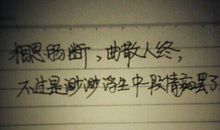 相思肠断，曲散人终，
不过是渺渺浮生中一段情痴罢了